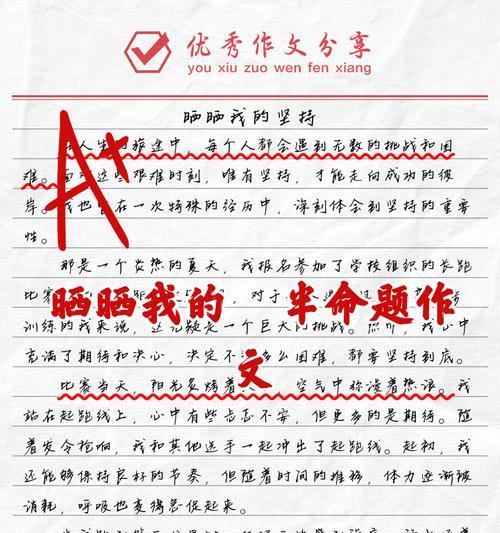 优秀作文分享
you xiu zuo wen fen xiang
晒晒我的坚持
人生的旅途中，每个人都会遇到无数的挑战和困
难。这些艰难时刻，唯有坚持，才能走向成功的彼
岸。我也在一次特殊的经历中，深刻体会到坚持的重要
性。
A+
那是一个炎热的夏天，我报名参加了学校组织的长跑
比赛
对于
晒晒我的 半命题作
文
训练的我来说，这无疑是一个巨大的挑战。然而，我心中
充满了期待和决心，决定不么困难，都要坚持到底。
比赛当天，阳光炙烤着，空气中弥漫着热浪。我
站在起跑线上，心中有些忐忑不安，但更多的是期待。随
着发令枪响，我和其他选手一起冲出了起跑线。起初，我
还能够保持良好的节奏，但随着时间的推移，体力逐渐被
消耗，呼吸也变得急促起来。